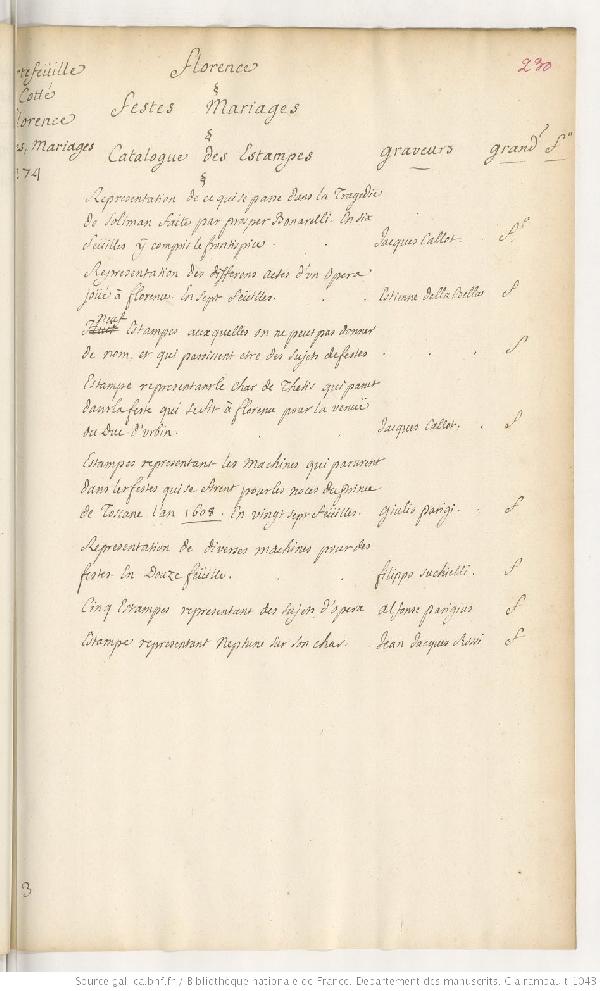 Florence 230
rtefeüille
Cotté
lorence
es, Mariages
174
§
Festes Mariages
§
Catalogue des Estampes graveurs grandr
§
Representation de ce qui se passe dans la Tragedie
de Soliman faite par prosper Bonarelli. En six
feüilles ÿ compris le frontispice. Jacques Callot.
Representation des differens actes d'un Opera
joüé à florence. En sept feüilles. Estienne della Bella f
neuf
Estampes auxquelles on ne peut pas donner
de nom, et qui paroissent etre des sujets de festes f
Estampe representant le char de Thetis qui parut
dans la feste qui se fit à florence pour la venuë
du Duc d'urbin. Jacques Callot. f
Estampes representant les Machines qui parurent
dans les festes qui se firent pour les noces du prince
de Toscane l'an 1608. En vingt sept feüilles. giulio parigi. f
Representation de diverses machines pour des
festes En Douze feüille. filippo suchielli. f
Cinq Estampes representant des sujets d'opera alfonse parigius f
Estampe representant Neptune sur son char. Jean Jacques Rossi f
3
Source gallica.bnf.fr / Bibliothèque nationale de France. Département des manuscrits. Clairambault 1043